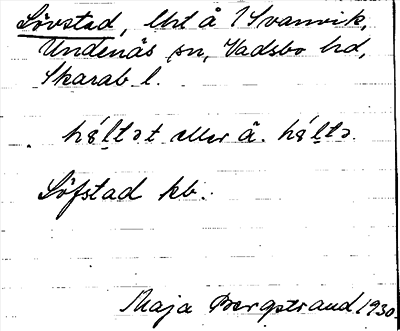 Lövstad, lht å 1 Svanvik,
Undenäs sn, Vadsbo hd,
Skarab l.
eller å.
Löfstad kb.
Maja Bergstrand 1930.